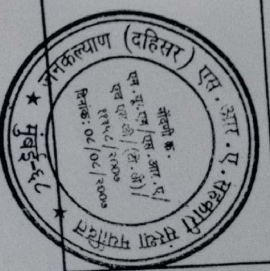 जनकल्याण (दहिसर) एस. आर. ए. सहकारी संस्था मर्यादित
★ मुंबई-६८ ★
नोंदणी क्र.
एम.यु.एम/एस.आर.ए/
११२५८/२०००
दिनांक: ०८/०८/२०००